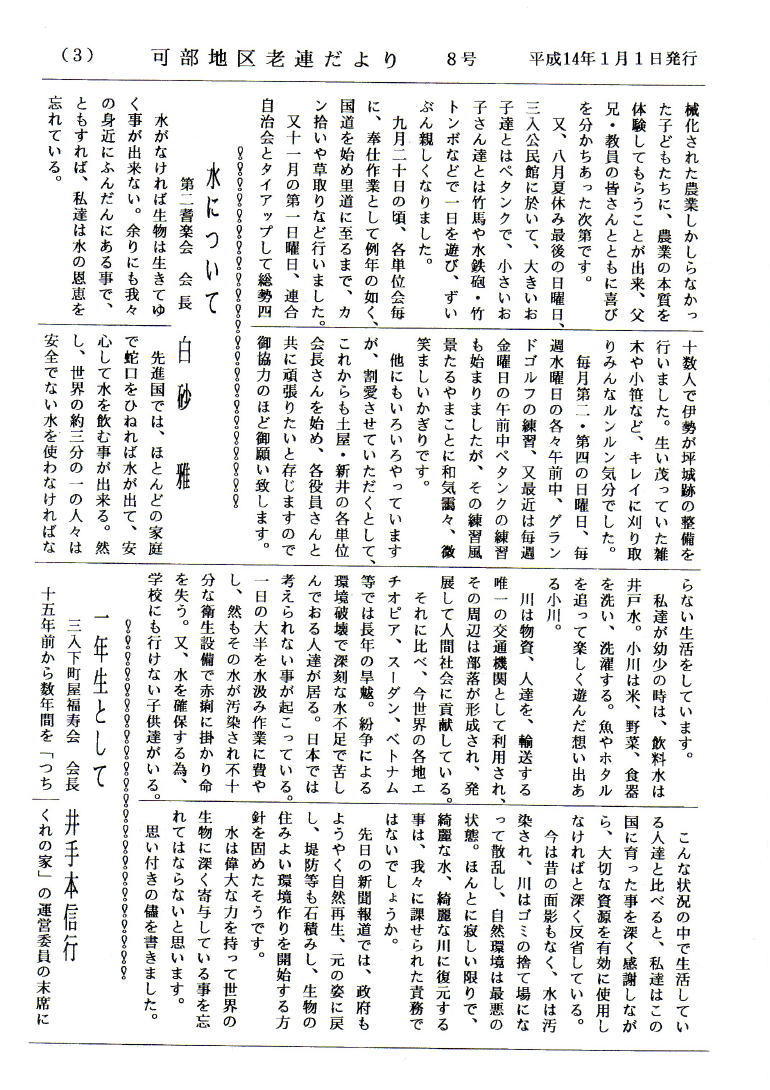 （3）　可部地区老連だより　8号　平成14年1月1日発行
械化された農業しかしらなかっ
た子どもたちに、農業の本質を
体験してもらうことが出来、父
兄・教員の皆さんとともに喜び
を分かちあった次第です。
又、八月夏休み最後の日曜日、
三入公民館に於いて、大きいお
子達とはペタンクで、小さいお
子さん達とは竹馬や水鉄砲・竹
トンボなどで一日を遊び、ずい
ぶん親しくなりました。
九月二十日の頃、各単位会毎
に、奉仕作業として例年の如く、
国道を始め里道に至るまで、カ
ン拾いや草取りなど行いました。
又十一月の第一日曜日、連合
自治会とタイアップして総勢四
十数人で伊勢が坪城跡の整備を
行いました。生い茂っていた雑
木や小笹など、キレイに刈り取
りみんなルンルン気分でした。
毎月第二・第四の日曜日、毎
週水曜日の各々午前中、グラン
ドゴルフの練習、又最近は毎週
金曜日の午前中ペタンクの練習
も始まりましたが、その練習風
景たるやまことに和気靄々、微
笑ましいかぎりです。
他にもいろいろやっています
が、割愛させていただくとして、
これからも土屋・新井の各単位
会長さんを始め、各役員さんと
共に頑張りたいと存じますので
御協力のほど御願い致します。
水について
第二耆楽会　会長　白砂　雅
水がなければ生物は生きてゆ
く事が出来ない。余りにも我々
の身近にふんだんにある事で、
ともすれば、私達は水の恩恵を
忘れている。
先進国では、ほとんどの家庭
で蛇口をひねれば水が出て、安
心して水を飲む事が出来る。然
し、世界の約三分の一の人々は
安全でない水を使わなければな
らない生活をしています。
私達が幼少の時は、飲料水は
井戸水。小川は米、野菜、食器
を洗い、洗濯する。魚やホタル
を追って楽しく遊んだ想い出あ
る小川。
川は物資、人達を、輸送する
唯一の交通機関として利用され、
その周辺は部落が形成され、発
展して人間社会に貢献している。
それに比べ、今世界の各地エ
チオピア、スーダン、ベトナム
等では長年の旱魃。紛争による
環境破壊で深刻な水不足で苦し
んでおる人達が居る。日本では
考えられない事が起こっている。
一日の大半を水汲み作業に費や
し、然もその水が汚染され不十
分な衛生設備で赤痢に掛かり命
を失う。又、水を確保する為、
学校にも行けない子供達がいる。
こんな状況の中で生活してい
る人達と比べると、私達はこの
国に育った事を深く感謝しなが
ら、大切な資源を有効に使用し
なければと深く反省している。
今は昔の面影もなく、水は汚
染され、川はゴミの捨て場にな
って散乱し、自然環境は最悪の
状態。ほんとに寂しい限りで、
綺麗な水、綺麗な川に復元する
事は、我々に課せられた責務で
はないでしょうか。
先日の新聞報道では、政府も
ようやく自然再生、元の姿に戻
し、堤防等も石積みし、生物の
住みよい環境作りを開始する方
針を固めたそうです。
水は偉大な力を持って世界の
生物に深く寄与している事を忘
れてはならないと思います。
思い付きの儘を書きました。
一年生として
三入下町屋福寿会　会長　井手本信行
十五年前から数年間を「つち
くれの家」の運営委員の末席に